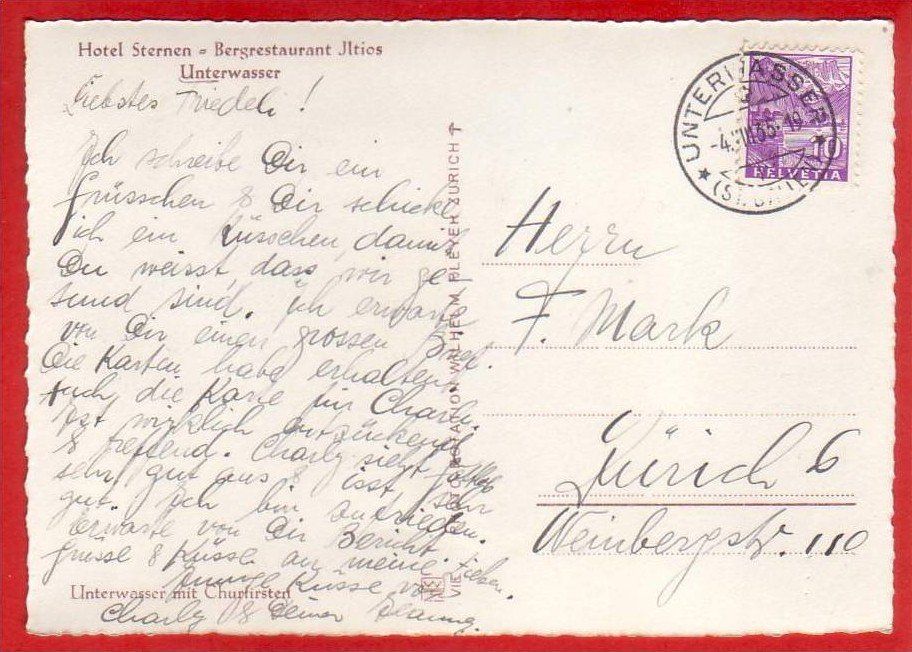 Hotel Sternen - Bergrestaurant Jltios
Unterwasser
Liebstes Friedeli!
Ich schreibe Dir ein
Grüsschen & Dir schicke
ich ein Küsschen, damit
Du weisst dass wir ge-
sund sind. Ich erwarte
von Dir einen grossen Brief.
Die Karten habe erhalten.
Auch die Karte für Charly
ist wirklich entzückend
& treffend. Charly sieht
sehr gut aus & isst sehr
gut. Ich bin zufrieden.
Erwarte von Dir Bericht.
Grüsse & Küsse an meine Lieben.
Innige Küsse von
Charly & Deiner
Unterwasser mit Churfirsten
WILHELM PLEYER ZÜRICH 7
UNTERWASSER
(ST. GALLEN)
-4.III.35.-19
10
HELVETIA
Herrn
F. Mark
Zürich 6
Weinbergstr. 110